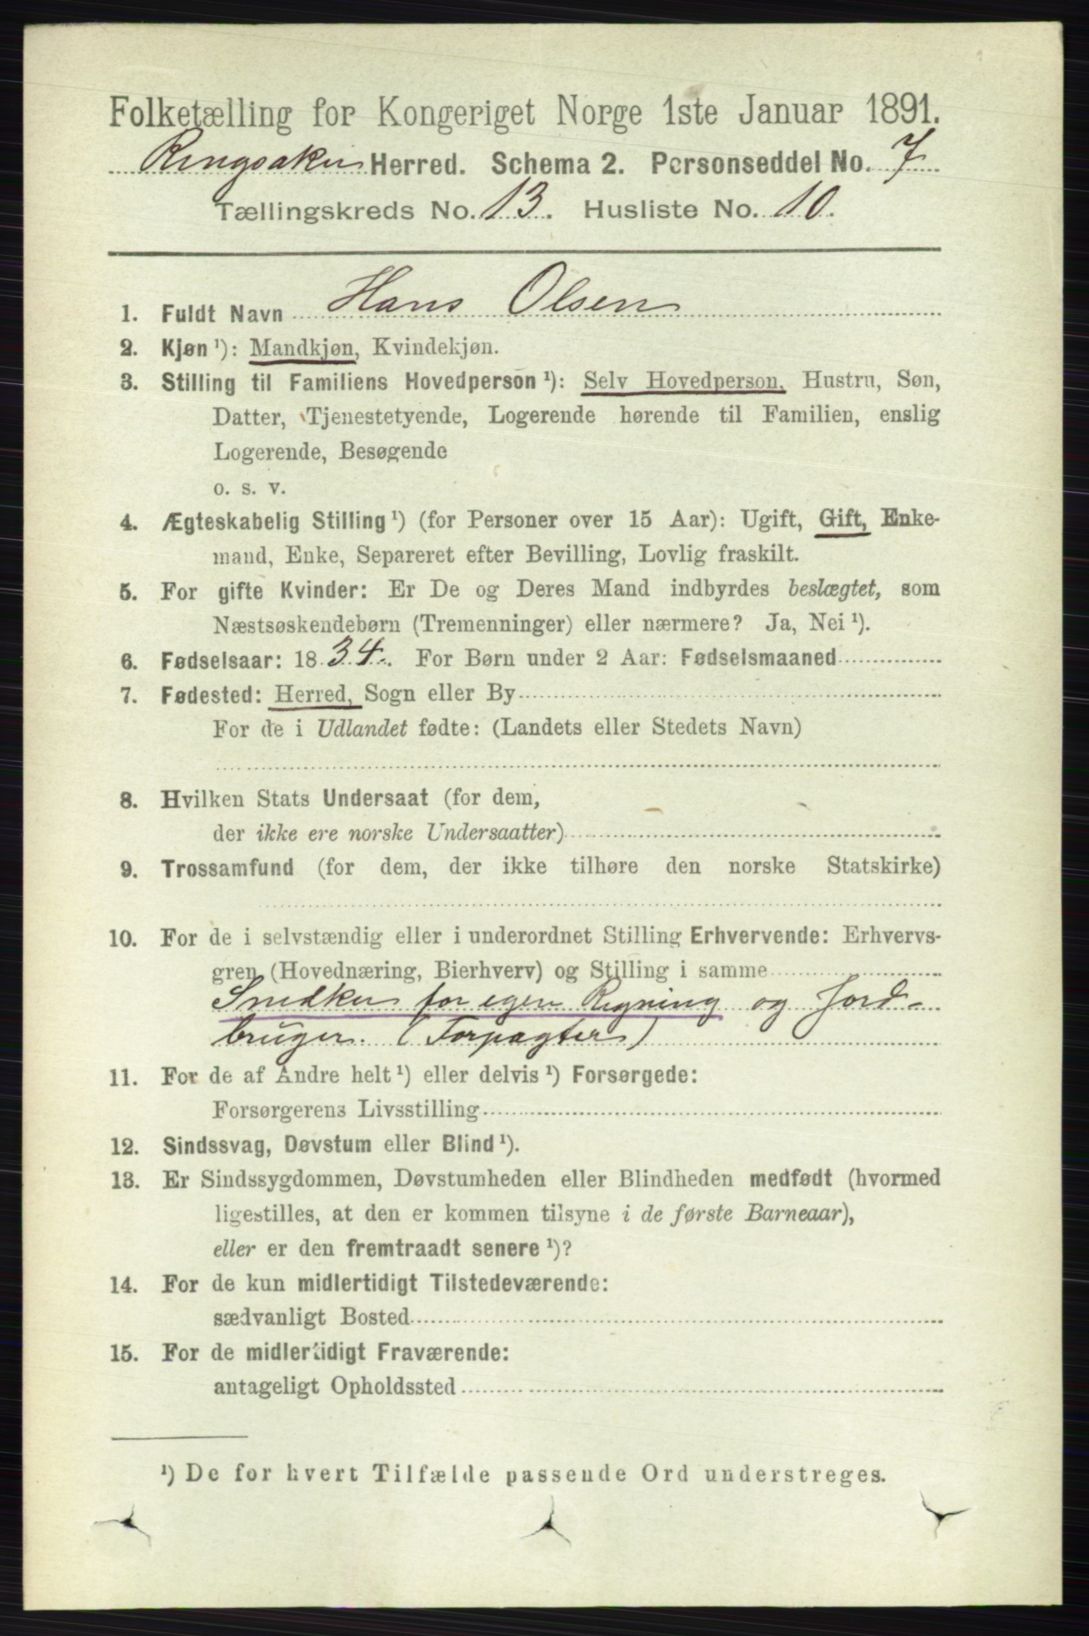 Folketælling for Kongeriget Norge 1ste Januar 1891.
Ringsaker Herred. Schema 2. Personseddel No. 7
Tællingskreds No. 13. Husliste No. 10.
1. Fuldt Navn Hans Olsen
2. Kjøn ¹): Mandkjøn, Kvindekjøn.
3. Stilling til Familiens Hovedperson ¹): Selv Hovedperson, Hustru, Søn,
Datter, Tjenestetyende, Logerende hørende til Familien, enslig
Logerende, Besøgende
o. s. v.
4. Ægteskabelig Stilling ¹) (for Personer over 15 Aar): Ugift, Gift, Enke-
mand, Enke, Separeret efter Bevilling, Lovlig fraskilt.
5. For gifte Kvinder: Er De og Deres Mand indbyrdes beslægtet, som
Næstsøskendebørn (Tremenninger) eller nærmere? Ja, Nei ¹).
6. Fødselsaar: 1834. For Børn under 2 Aar: Fødselsmaaned
7. Fødested: Herred, Sogn eller By
For de i Udlandet fødte: (Landets eller Stedets Navn)
8. Hvilken Stats Undersaat (for dem,
der ikke ere norske Undersaatter)
9. Trossamfund (for dem, der ikke tilhøre den norske Statskirke)
10. For de i selvstændig eller i underordnet Stilling Erhvervende: Erhvervs-
gren (Hovednæring, Bierhverv) og Stilling i samme
Snedker for egen Regning og Jord-
bruger. (Forpagter)
11. For de af Andre helt ¹) eller delvis ¹) Forsørgede:
Forsørgerens Livsstilling
12. Sindssvag, Døvstum eller Blind ¹).
13. Er Sindssygdommen, Døvstumheden eller Blindheden medfødt (hvormed
ligestilles, at den er kommen tilsyne i de første Barneaar),
eller er den fremtraadt senere ¹)?
14. For de kun midlertidigt Tilstedeværende:
sædvanligt Bosted
15. For de midlertidigt Fraværende:
antageligt Opholdssted
¹) De for hvert Tilfælde passende Ord understreges.